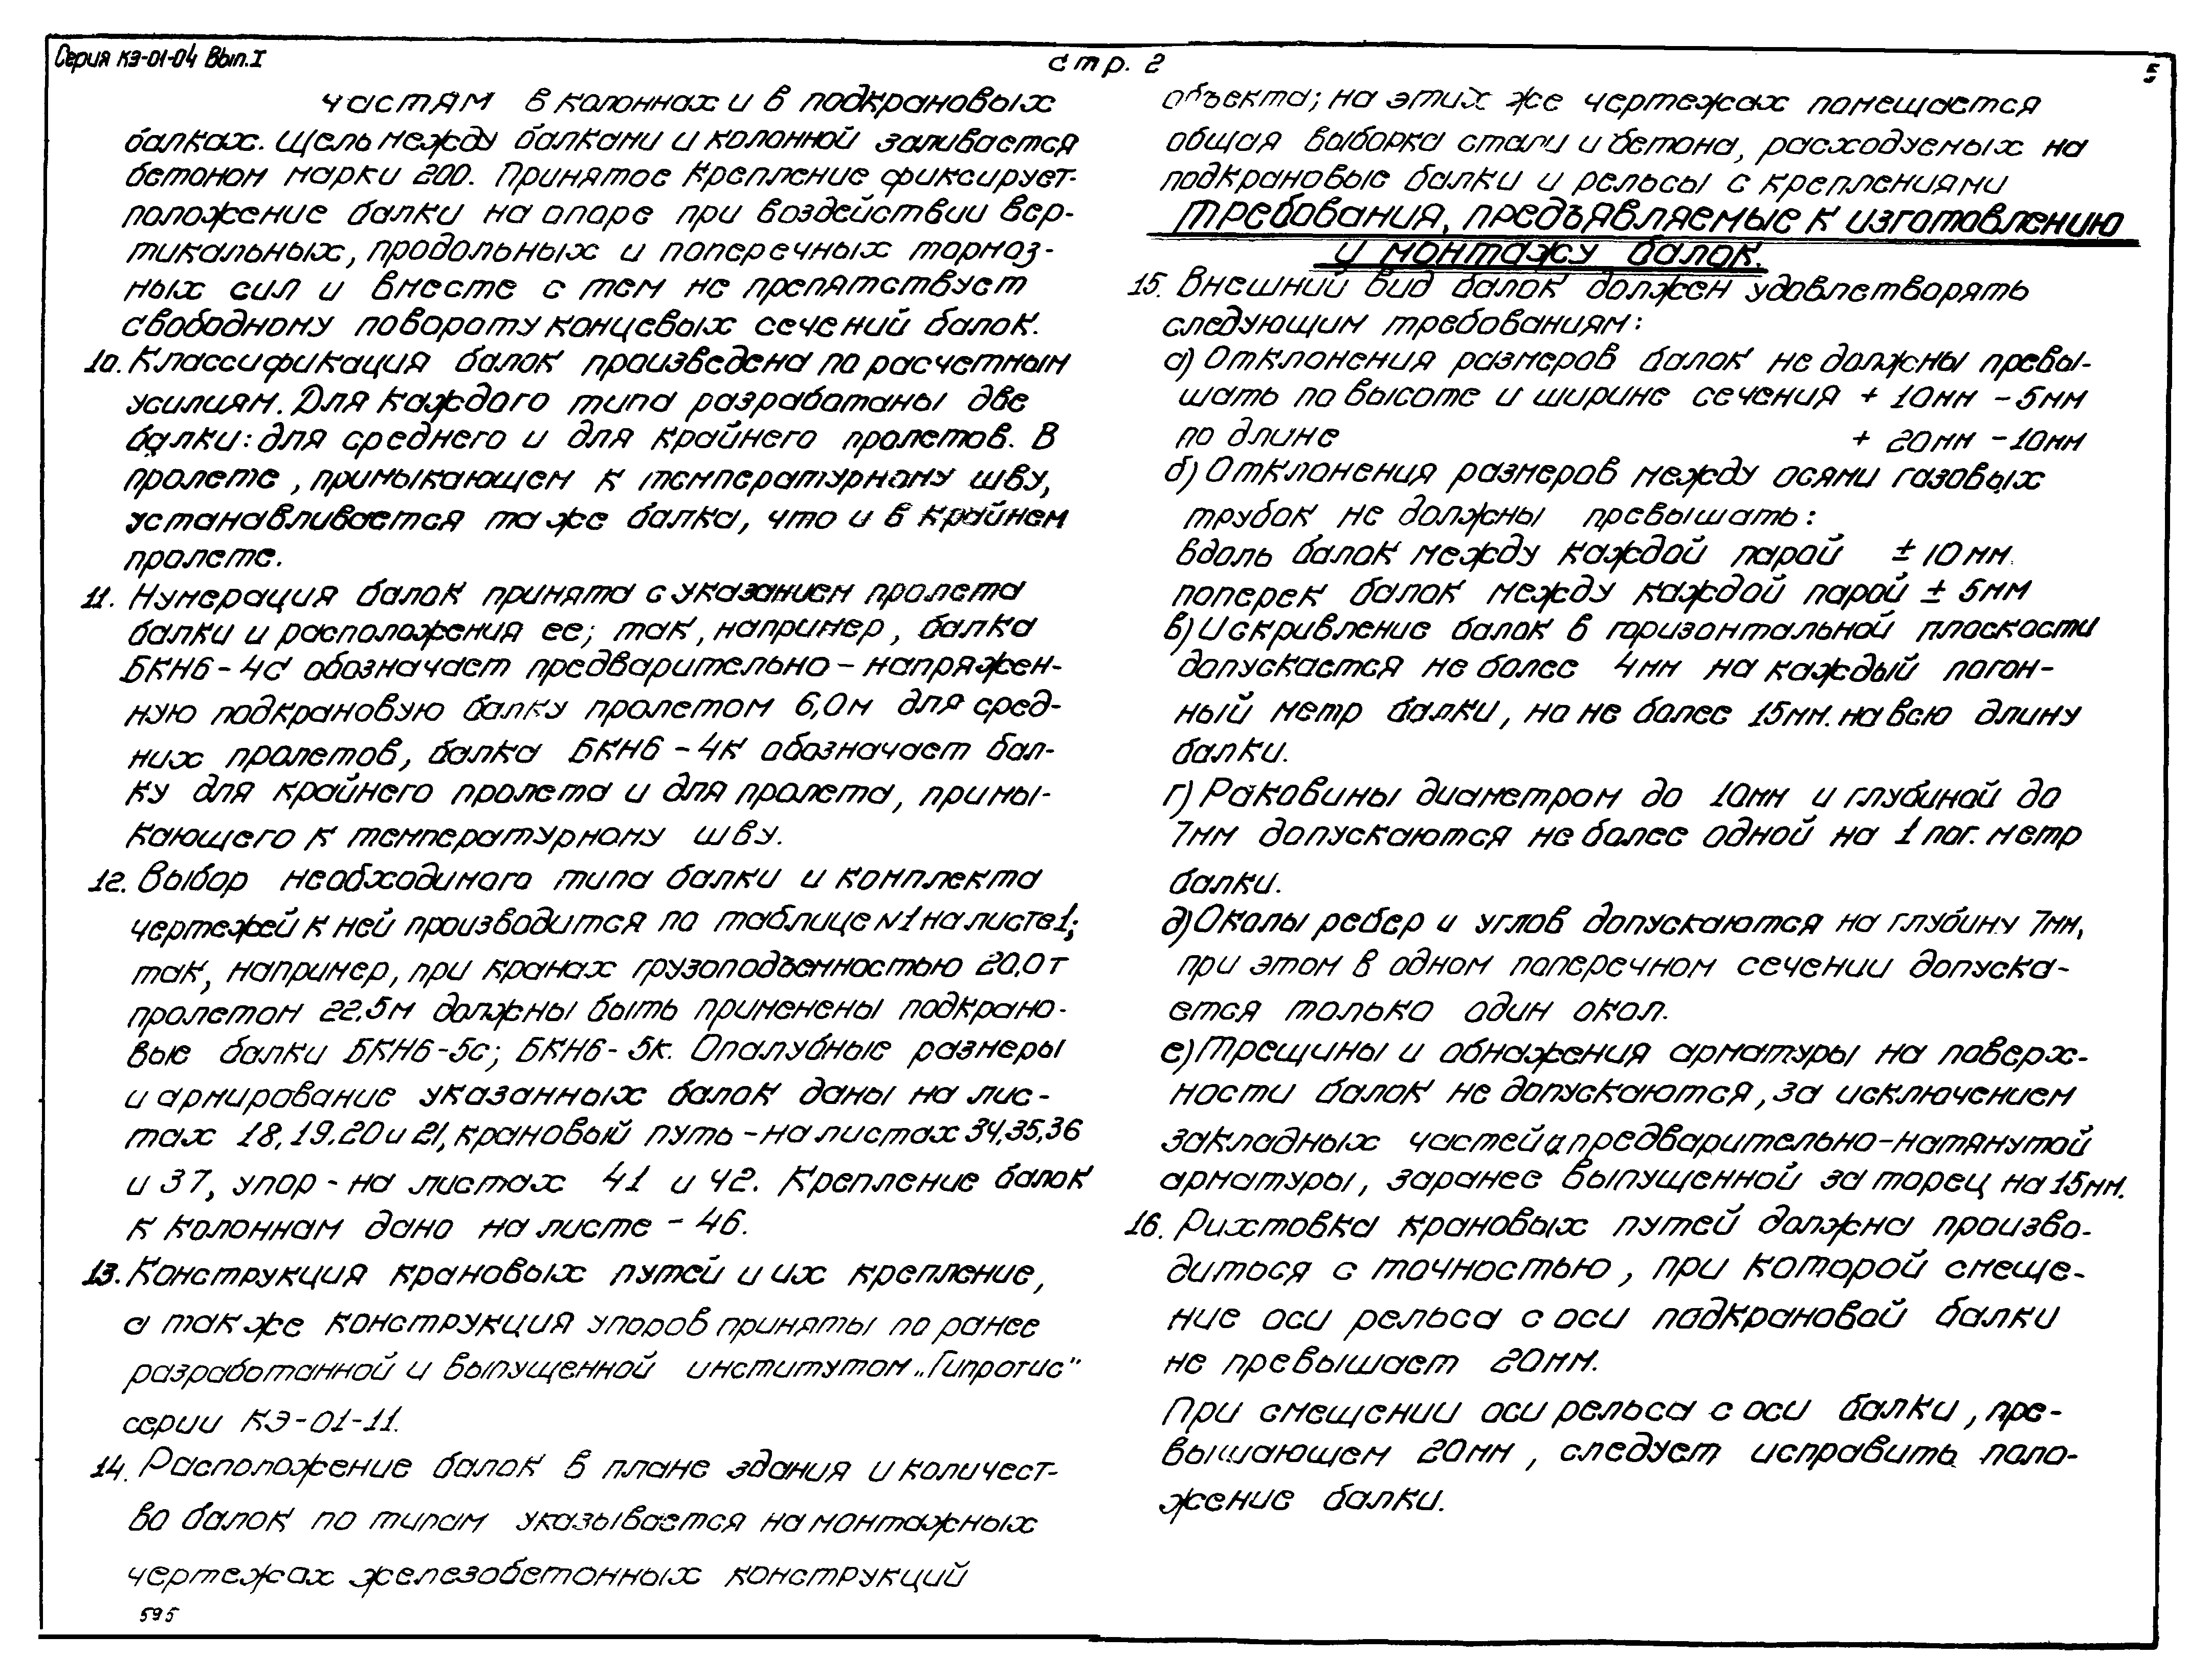 Серия КЭ-01-04 Вып.I
стр. 2
5
частям в колоннах и в подкрановых
балках. Щель между балками и колонной заливается
бетоном марки 200. Принятое крепление фиксирует
положение балки на опоре при воздействии вер-
тикальных, продольных и поперечных тормоз-
ных сил и вместе с тем не препятствует
свободному повороту концевых сечений балок.
10. Классификация балок произведена по расчетным
усилиям. Для каждого типа разработаны две
балки: для среднего и для крайнего пролетов. В
пролете, примыкающем к температурному шву,
устанавливается та же балка, что и в крайнем
пролете.
11. Нумерация балок принята с указанием пролета
балки и расположения ее; так, например, балка
БКН6-4с обозначает предварительно-напряжен-
ную подкрановую балку пролетом 6,0м для сред-
них пролетов, балка БКН6-4к обозначает бал-
ку для крайнего пролета и для пролета, примы-
кающего к температурному шву.
12. Выбор необходимого типа балки и комплекта
чертежей к ней производится по таблице №1 на листе 1;
так, например, при кранах грузоподъемностью 20,0т
пролетом 22.5м должны быть применены подкрано-
вые балки БКН6-5с; БКН6-5к. Опалубные размеры
и армирование указанных балок даны на лис-
тах 18, 19, 20 и 21, крановый путь - на листах 34,35,36
и 37, упор - на листах 41 и 42. Крепление балок
к колоннам дано на листе - 46.
13. Конструкция крановых путей и их крепление,
а также конструкция упоров приняты по ранее
разработанной и выпущенной институтом „Гипротис"
серии КЭ-01-11.
14. Расположение балок в плане здания и количест-
во балок по типам указывается на монтажных
чертежах железобетонных конструкций
595
объекта; на этих же чертежах помещается
общая выборка стали и бетона, расходуемых на
подкрановые балки и рельсы с креплениями
Требования, предъявляемые к изготовлению
и монтажу балок.
15. Внешний вид балок должен удовлетворять
следующим требованиям:
а) Отклонения размеров балок не должны превы-
шать по высоте и ширине сечения + 10мм - 5мм
по длине + 20мм - 10мм
б) Отклонения размеров между осями газовых
трубок не должны превышать:
вдоль балок между каждой парой ± 10мм.
поперек балок между каждой парой ± 5мм
в) Искривление балок в горизонтальной плоскости
допускается не более 4мм на каждый погон-
ный метр балки, но не более 15мм. на всю длину
балки.
г) Раковины диаметром до 10мм и глубиной до
7мм допускаются не более одной на 1 пог. метр
балки.
д) Околы ребер и углов допускаются на глубину 7мм,
при этом в одном поперечном сечении допуска-
ется только один окол.
е) Трещины и обнажения арматуры на поверх-
ности балок не допускаются, за исключением
закладных частей и предварительно-натянутой
арматуры, заранее выпущенной за торец на 15мм.
16. Рихтовка крановых путей должна произво-
диться с точностью, при которой смеще-
ние оси рельса с оси подкрановой балки
не превышает 20мм.
При смещении оси рельса с оси балки, пре-
вышающем 20мм, следует исправить поло-
жение балки.